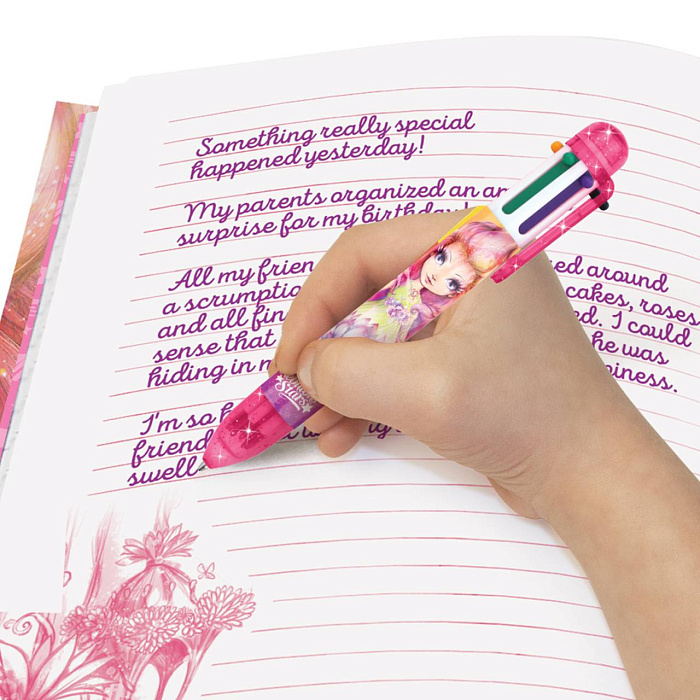 Something really special
happened yesterday!
My parents organized an
surprise for my birthday!
All my frien around
a scrumptio cakes, roses
and all fin I could
sense that he was
hiding in
I'm so
friend
swell
Stars